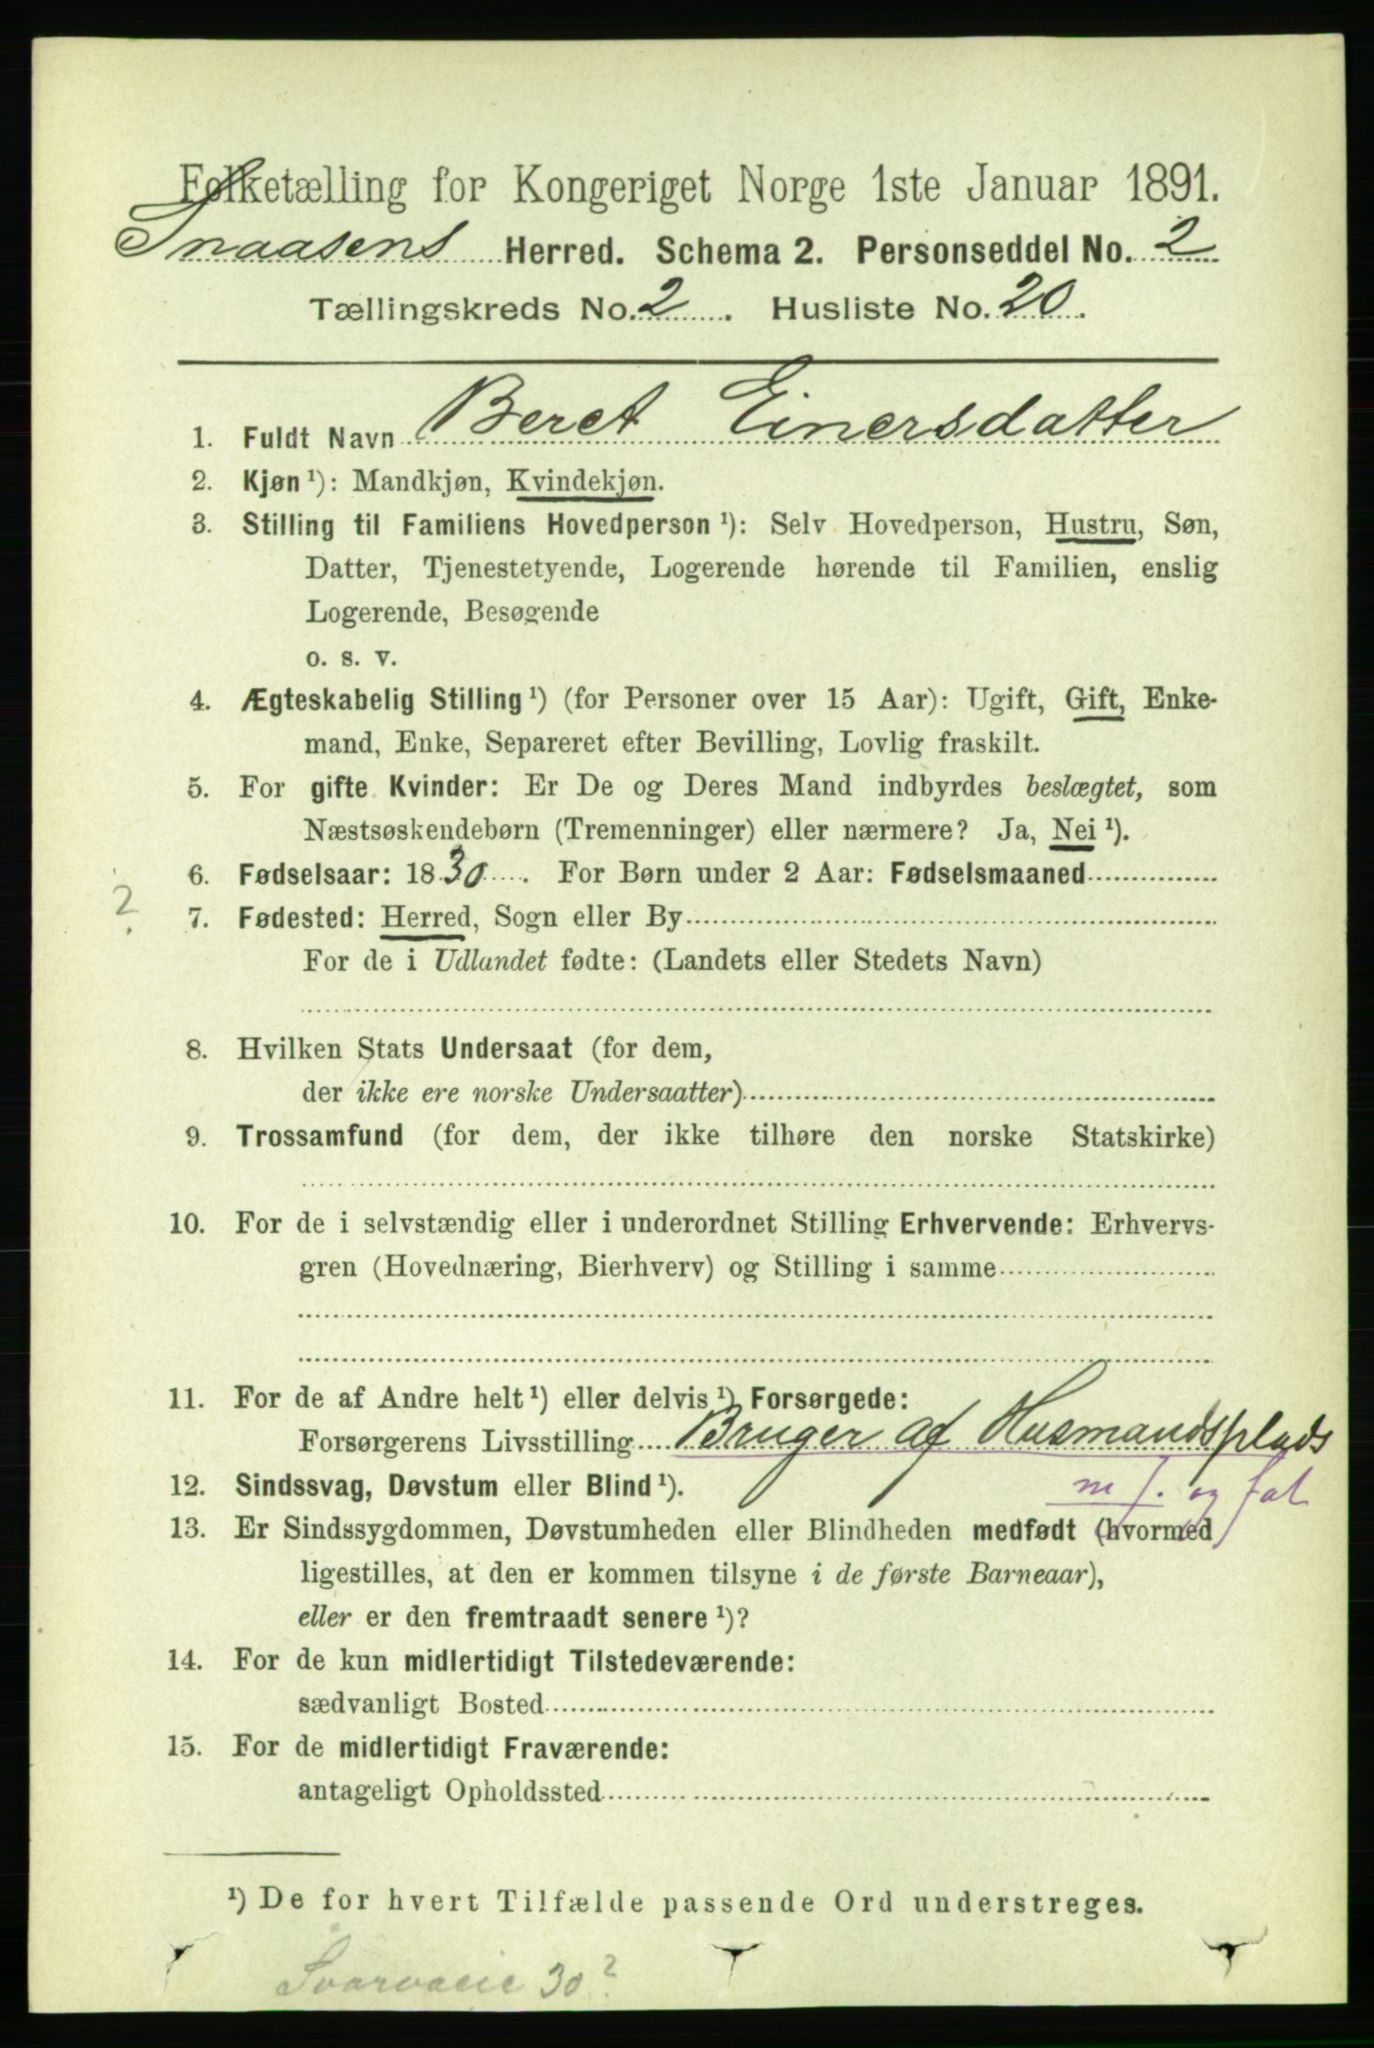 Folketælling for Kongeriget Norge 1ste Januar 1891.
Snaasens Herred. Schema 2. Personseddel No. 2
Tællingskreds No. 2. Husliste No. 20.
1. Fuldt Navn Beret Einersdatter
2. Kjøn ¹): Mandkjøn, Kvindekjøn.
3. Stilling til Familiens Hovedperson ¹): Selv Hovedperson, Hustru, Søn,
Datter, Tjenestetyende, Logerende hørende til Familien, enslig
Logerende, Besøgende
o. s. v.
4. Ægteskabelig Stilling ¹) (for Personer over 15 Aar): Ugift, Gift, Enke-
mand, Enke, Separeret efter Bevilling, Lovlig fraskilt.
5. For gifte Kvinder: Er De og Deres Mand indbyrdes beslægtet, som
Næstsøskendebørn (Tremenninger) eller nærmere? Ja, Nei ¹).
6. Fødselsaar: 1830. For Børn under 2 Aar: Fødselsmaaned
? 7. Fødested: Herred, Sogn eller By
For de i Udlandet fødte: (Landets eller Stedets Navn)
8. Hvilken Stats Undersaat (for dem,
der ikke ere norske Undersaatter)
9. Trossamfund (for dem, der ikke tilhøre den norske Statskirke)
10. For de i selvstændig eller i underordnet Stilling Erhvervende: Erhvervs-
gren (Hovednæring, Bierhverv) og Stilling i samme
11. For de af Andre helt ¹) eller delvis ¹) Forsørgede:
Forsørgerens Livsstilling Bruger af Husmandsplads
12. Sindssvag, Døvstum eller Blind ¹). m j. og fat
13. Er Sindssygdommen, Døvstumheden eller Blindheden medfødt (hvormed
ligestilles, at den er kommen tilsyne i de første Barneaar),
eller er den fremtraadt senere ¹)?
14. For de kun midlertidigt Tilstedeværende:
sædvanligt Bosted
15. For de midlertidigt Fraværende:
antageligt Opholdssted
¹) De for hvert Tilfælde passende Ord understreges.
30?